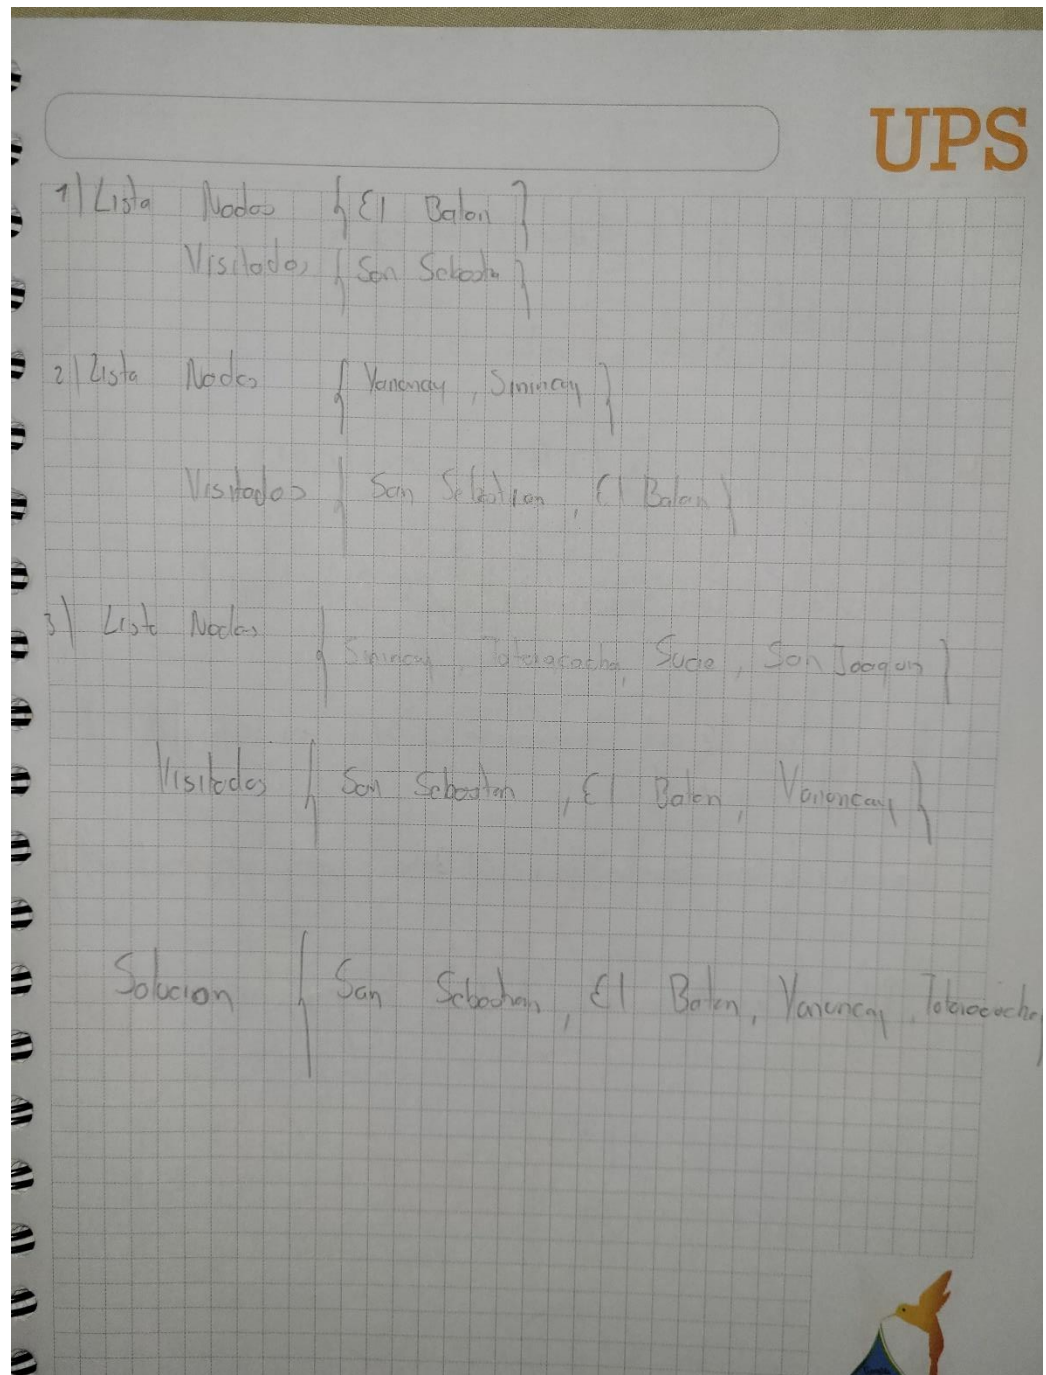 UPS
1) Lista Nodos { El Batan }
Visitados { San Sebastn }
2) Lista Nodos { Yanuncay, Sinincay }
Visitados { San Sebastian, El Batan }
3) Lista Nodos
{ Sinincay, Totoracocha, Sucre, San Joaquin }
Visitados { San Sebastian, El Batan, Yanuncay }
Solucion { San Sebastian, El Batan, Yanuncay, Totoracocha }